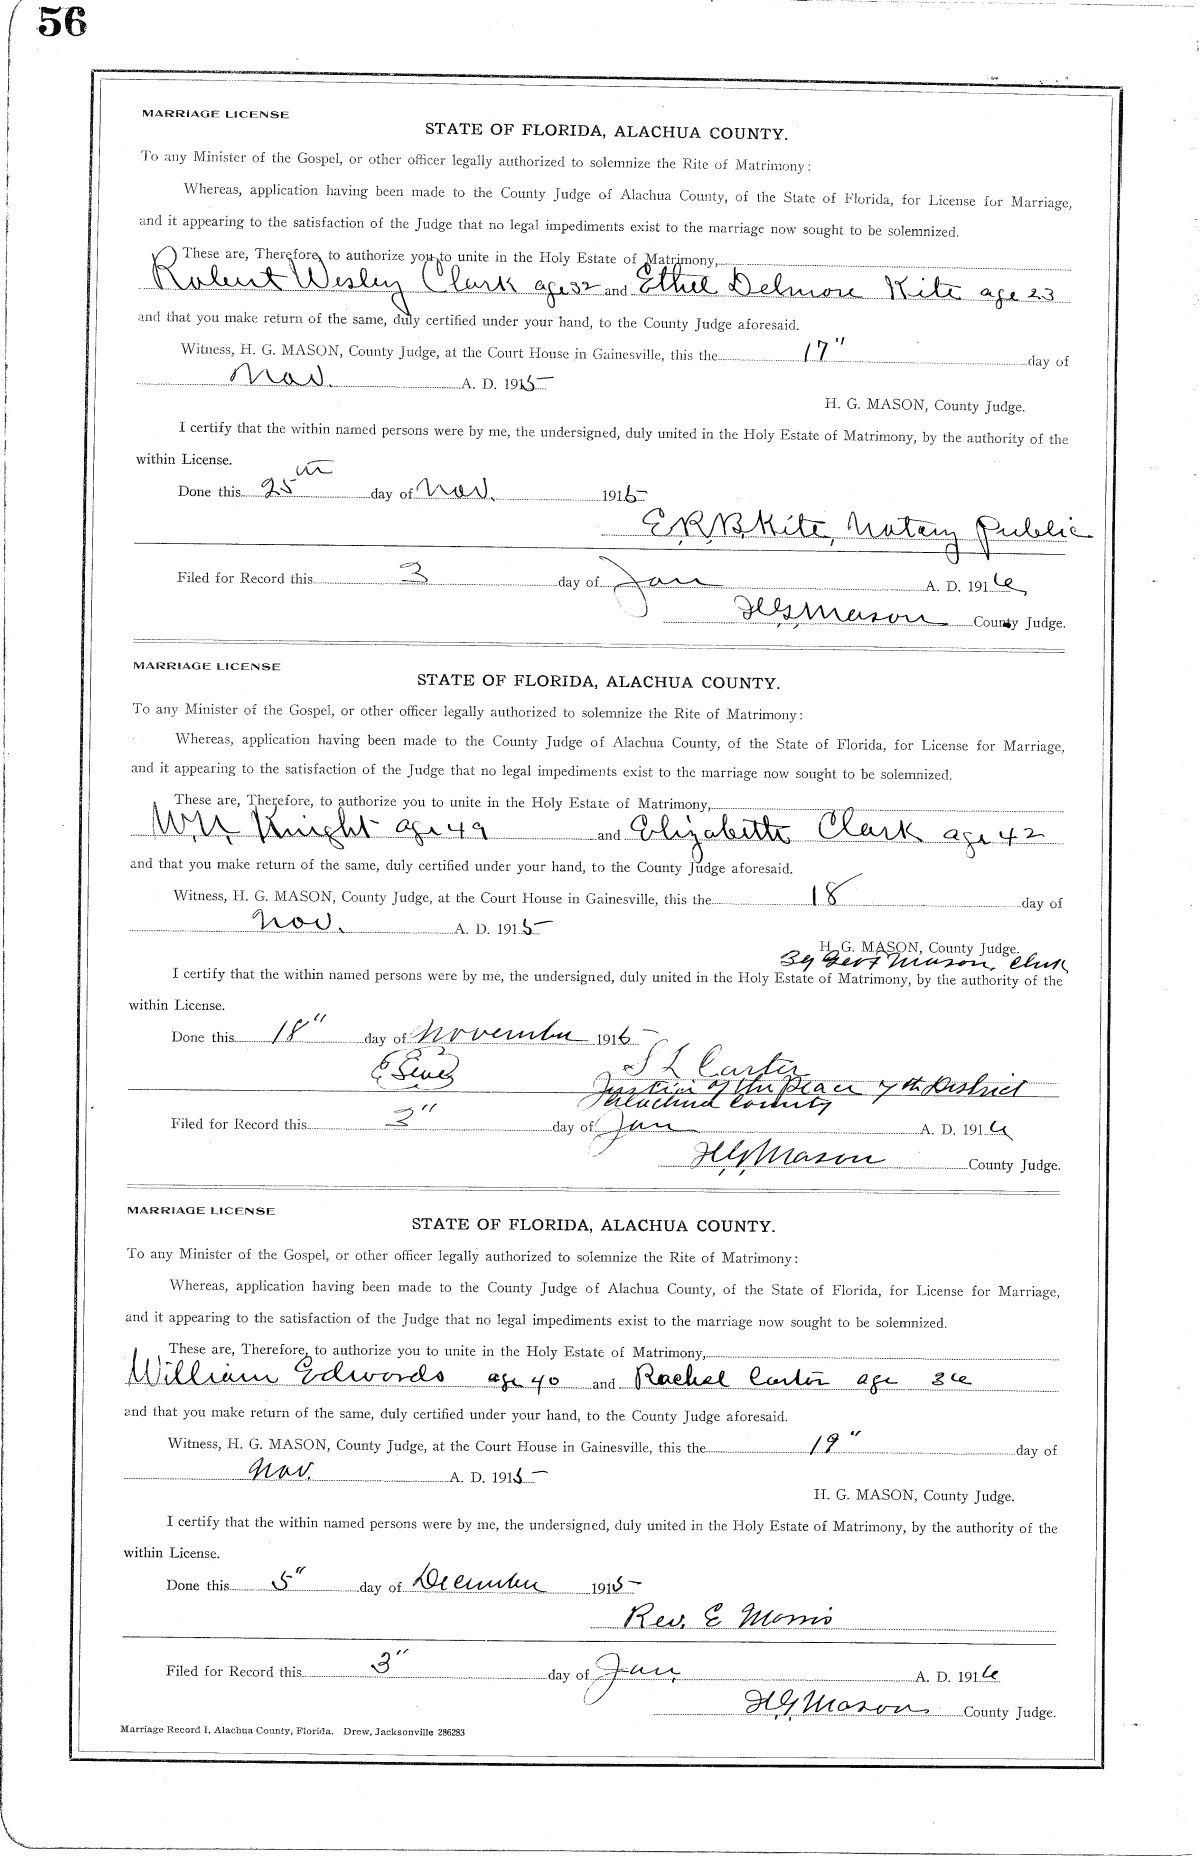 56
MARRIAGE LICENSE
STATE OF FLORIDA, ALACHUA COUNTY.
To any Minister of the Gospel, or other officer legally authorized to solemnize the Rite of Matrimony:
Whereas, application having been made to the County Judge of Alachua County, of the State of Florida, for License for Marriage,
and it appearing to the satisfaction of the Judge that no legal impediments exist to the marriage now sought to be solemnized.
These are, Therefore, to authorize you to unite in the Holy Estate of Matrimony,
Robert Wesley Clark age 32 and Ethel Delmore Kite age 23
and that you make return of the same, duly certified under your hand, to the County Judge aforesaid.
Witness, H. G. MASON, County Judge, at the Court House in Gainesville, this the 17" day of
Nov. A. D. 1915
H. G. MASON, County Judge.
I certify that the within named persons were by me, the undersigned, duly united in the Holy Estate of Matrimony, by the authority of the
within License.
Done this 25th day of Nov. 1915
E.R.B. Kite, Notary Public
Filed for Record this 3 day of Jan A. D. 1916
H.G. Mason County Judge.
MARRIAGE LICENSE
STATE OF FLORIDA, ALACHUA COUNTY.
To any Minister of the Gospel, or other officer legally authorized to solemnize the Rite of Matrimony:
Whereas, application having been made to the County Judge of Alachua County, of the State of Florida, for License for Marriage,
and it appearing to the satisfaction of the Judge that no legal impediments exist to the marriage now sought to be solemnized.
These are, Therefore, to authorize you to unite in the Holy Estate of Matrimony,
W.N. Knight age 49 and Elizabeth Clark age 42
and that you make return of the same, duly certified under your hand, to the County Judge aforesaid.
Witness, H. G. MASON, County Judge, at the Court House in Gainesville, this the 18 day of
Nov. A. D. 1915
H. G. MASON, County Judge.
By Mason, Clerk
I certify that the within named persons were by me, the undersigned, duly united in the Holy Estate of Matrimony, by the authority of the
within License.
Done this 18" day of November 1915
S L Carter
Justice of the Peace 7th District
Alachua County
Filed for Record this 3" day of Jan A. D. 1916
H.G. Mason County Judge.
MARRIAGE LICENSE
STATE OF FLORIDA, ALACHUA COUNTY.
To any Minister of the Gospel, or other officer legally authorized to solemnize the Rite of Matrimony:
Whereas, application having been made to the County Judge of Alachua County, of the State of Florida, for License for Marriage,
and it appearing to the satisfaction of the Judge that no legal impediments exist to the marriage now sought to be solemnized.
These are, Therefore, to authorize you to unite in the Holy Estate of Matrimony,
William Edwards age 40 and Rachel Carter age 36
and that you make return of the same, duly certified under your hand, to the County Judge aforesaid.
Witness, H. G. MASON, County Judge, at the Court House in Gainesville, this the 19" day of
Nov. A. D. 1915
H. G. MASON, County Judge.
I certify that the within named persons were by me, the undersigned, duly united in the Holy Estate of Matrimony, by the authority of the
within License.
Done this 5" day of December 1915
Rev. E Morris
Filed for Record this 3" day of Jan. A. D. 1916
H.G. Mason County Judge.
Marriage Record I, Alachua County, Florida. Drew, Jacksonville 286283